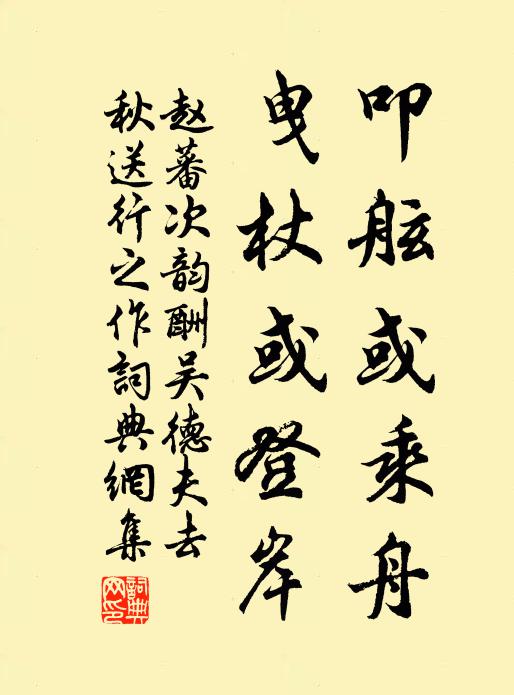 叩舷或乘舟
曳杖或登岸
赵蕃次韵酬吴德夫去
秋送行之作詞典網集
詞典网印